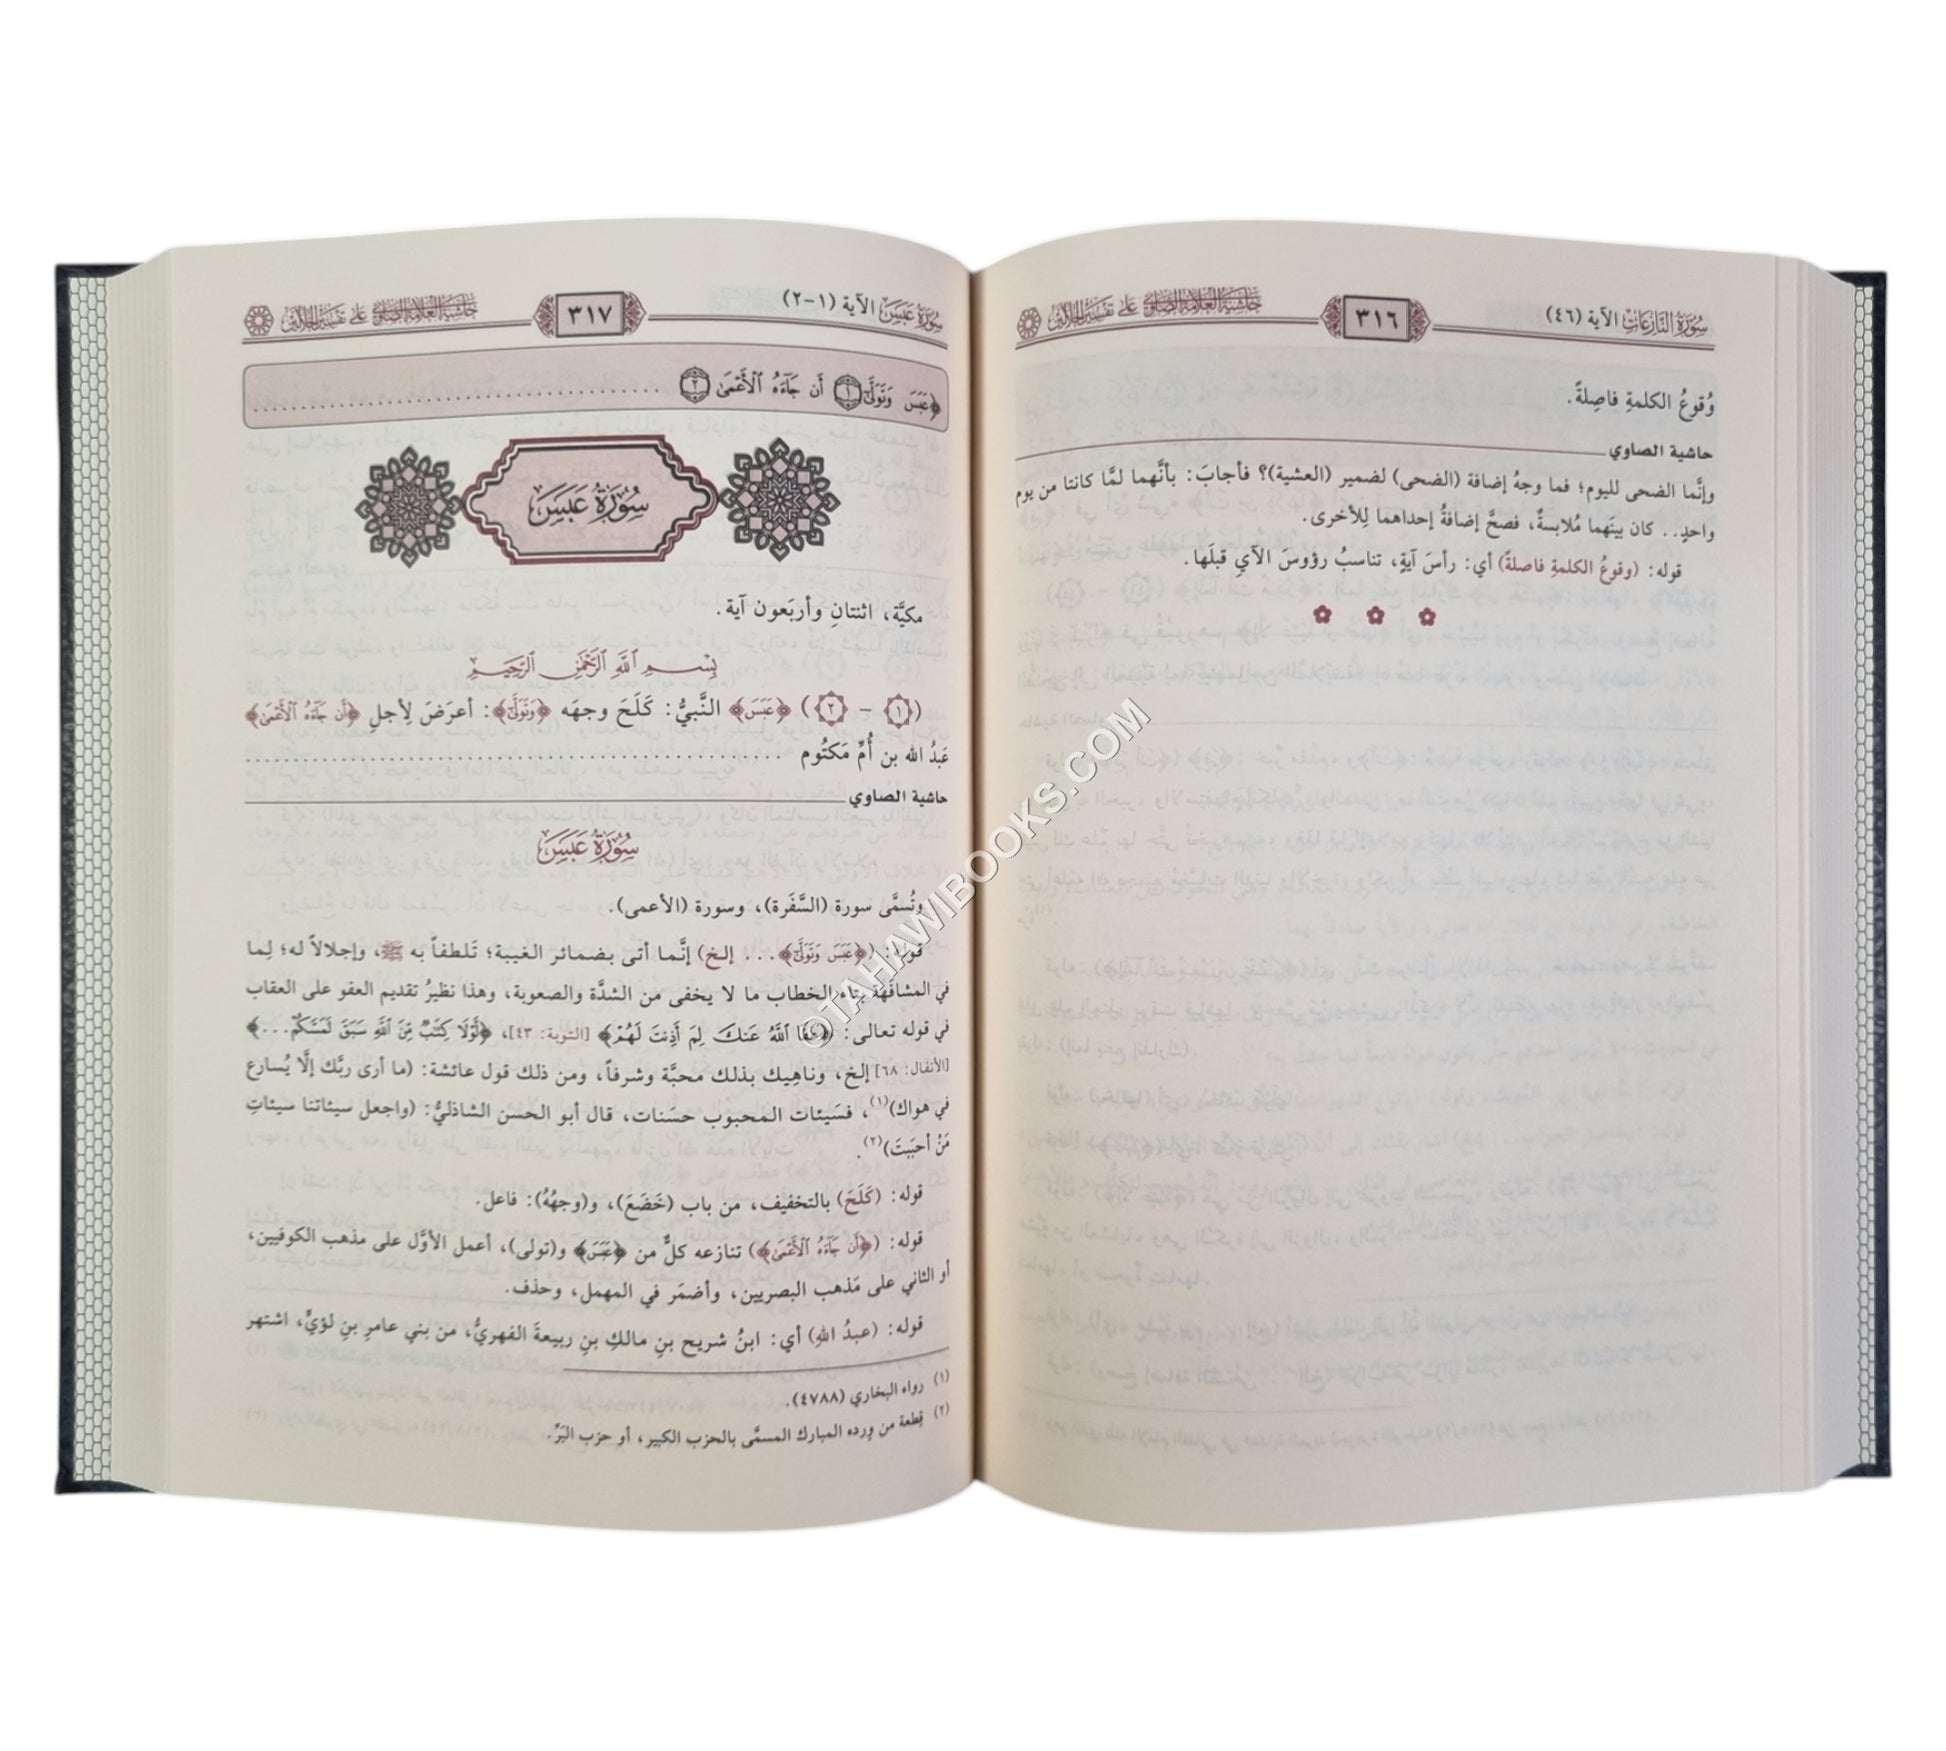 سُورَةُ النَّازِعَاتِ الآية (٤٦) ٣١٦ حَاشِيَة العَلَّامَة الصَّاوِي عَلَى تَفْسِير الجَلَالَيْن
وُقوعُ الكلمةِ فاصِلةً.
حاشية الصاوي
وإنَّما الضحى لليوم؛ فما وجهُ إضافة (الضحى) لضمير (العشية)؟ فأجابَ: بأنَّهما لمَّا كانتا من يوم
واحدٍ.. كان بينَهما مُلابسةٌ، فصحَّ إضافةُ إحداهما لِلأخرى.
قوله: (وقوعُ الكلمةِ فاصلةً) أي: رأسَ آيةٍ، تناسبُ رؤوسَ الآيِ قبلَها.
سُورَةُ عَبَسَ الآية (١-٢) ٣١٧ حَاشِيَة العَلَّامَة الصَّاوِي عَلَى تَفْسِير الجَلَالَيْن
﴿عَبَسَ وَتَوَلَّىٰٓ ١ أَن جَآءَهُ ٱلْأَعْمَىٰ ٢ ..........
سُورَةُ عَبَسَ
مكيَّة، اثنتانِ وأربَعون آية.
بِسْمِ ٱللَّهِ ٱلرَّحْمَٰنِ ٱلرَّحِيمِ
(١ - ٢) ﴿عَبَسَ﴾ النَّبيُّ: كَلَحَ وجهَه ﴿وَتَوَلَّىٰٓ﴾: أعرَضَ لِأجلِ ﴿أَن جَآءَهُ ٱلْأَعْمَىٰ﴾
عَبدُ الله بن أُمِّ مَكتُوم ..........
حاشية الصاوي
سُورَةُ عَبَسَ
وتُسمَّى سورة (السَّفَرة)، وسورة (الأعمى).
قوله: (﴿عَبَسَ وَتَوَلَّىٰٓ﴾... إلخ) إنَّما أتى بضمائر الغيبة؛ تَلطفاً به ﷺ، وإجلالاً له؛ لِما
في المشافَهة بتاء الخطاب ما لا يخفى من الشدَّة والصعوبة، وهذا نظيرُ تقديم العفو على العقاب
في قوله تعالى: ﴿عَفَا ٱللَّهُ عَنكَ لِمَ أَذِنتَ لَهُمْ﴾ [التوبة: ٤٣]، ﴿لَّوْلَا كِتَٰبٌ مِّنَ ٱللَّهِ سَبَقَ لَمَسَّكُمْ...﴾
[الأنفال: ٦٨] إلخ، وناهِيك بذلك محبَّة وشرفاً، ومن ذلك قول عائشة: (ما أرى ربَّك إلَّا يُسارع
في هواك)(١)، فسَيئات المحبوب حسَنات، قال أبو الحسن الشاذليُّ: (واجعل سيئاتنا سيئاتِ
مَنْ أحبَبتَ)(٢).
قوله: (كَلَحَ) بالتخفيف، من باب (خَضَعَ)، و(وجهُهُ): فاعل.
قوله: (﴿أَن جَآءَهُ ٱلْأَعْمَىٰ﴾) تنازعه كلٌّ من ﴿عَبَسَ﴾ و(تولى)، أعمل الأوَّل على مذهب الكوفيين،
أو الثاني على مَذهب البصريين، وأضمَر في المهمل، وحذف.
قوله: (عبدُ اللهِ) أي: ابنُ شريح بنِ مالكِ بنِ ربيعةَ الفهريُّ، من بني عامرِ بنِ لؤيٍّ، اشتهر
(١) رواه البخاري (٤٧٨٨).
(٢) قِطعة من وِرده المبارك المسمَّى بالحزب الكبير، أو حزب البَرِّ.
©TAHAWIBOOKS.COM